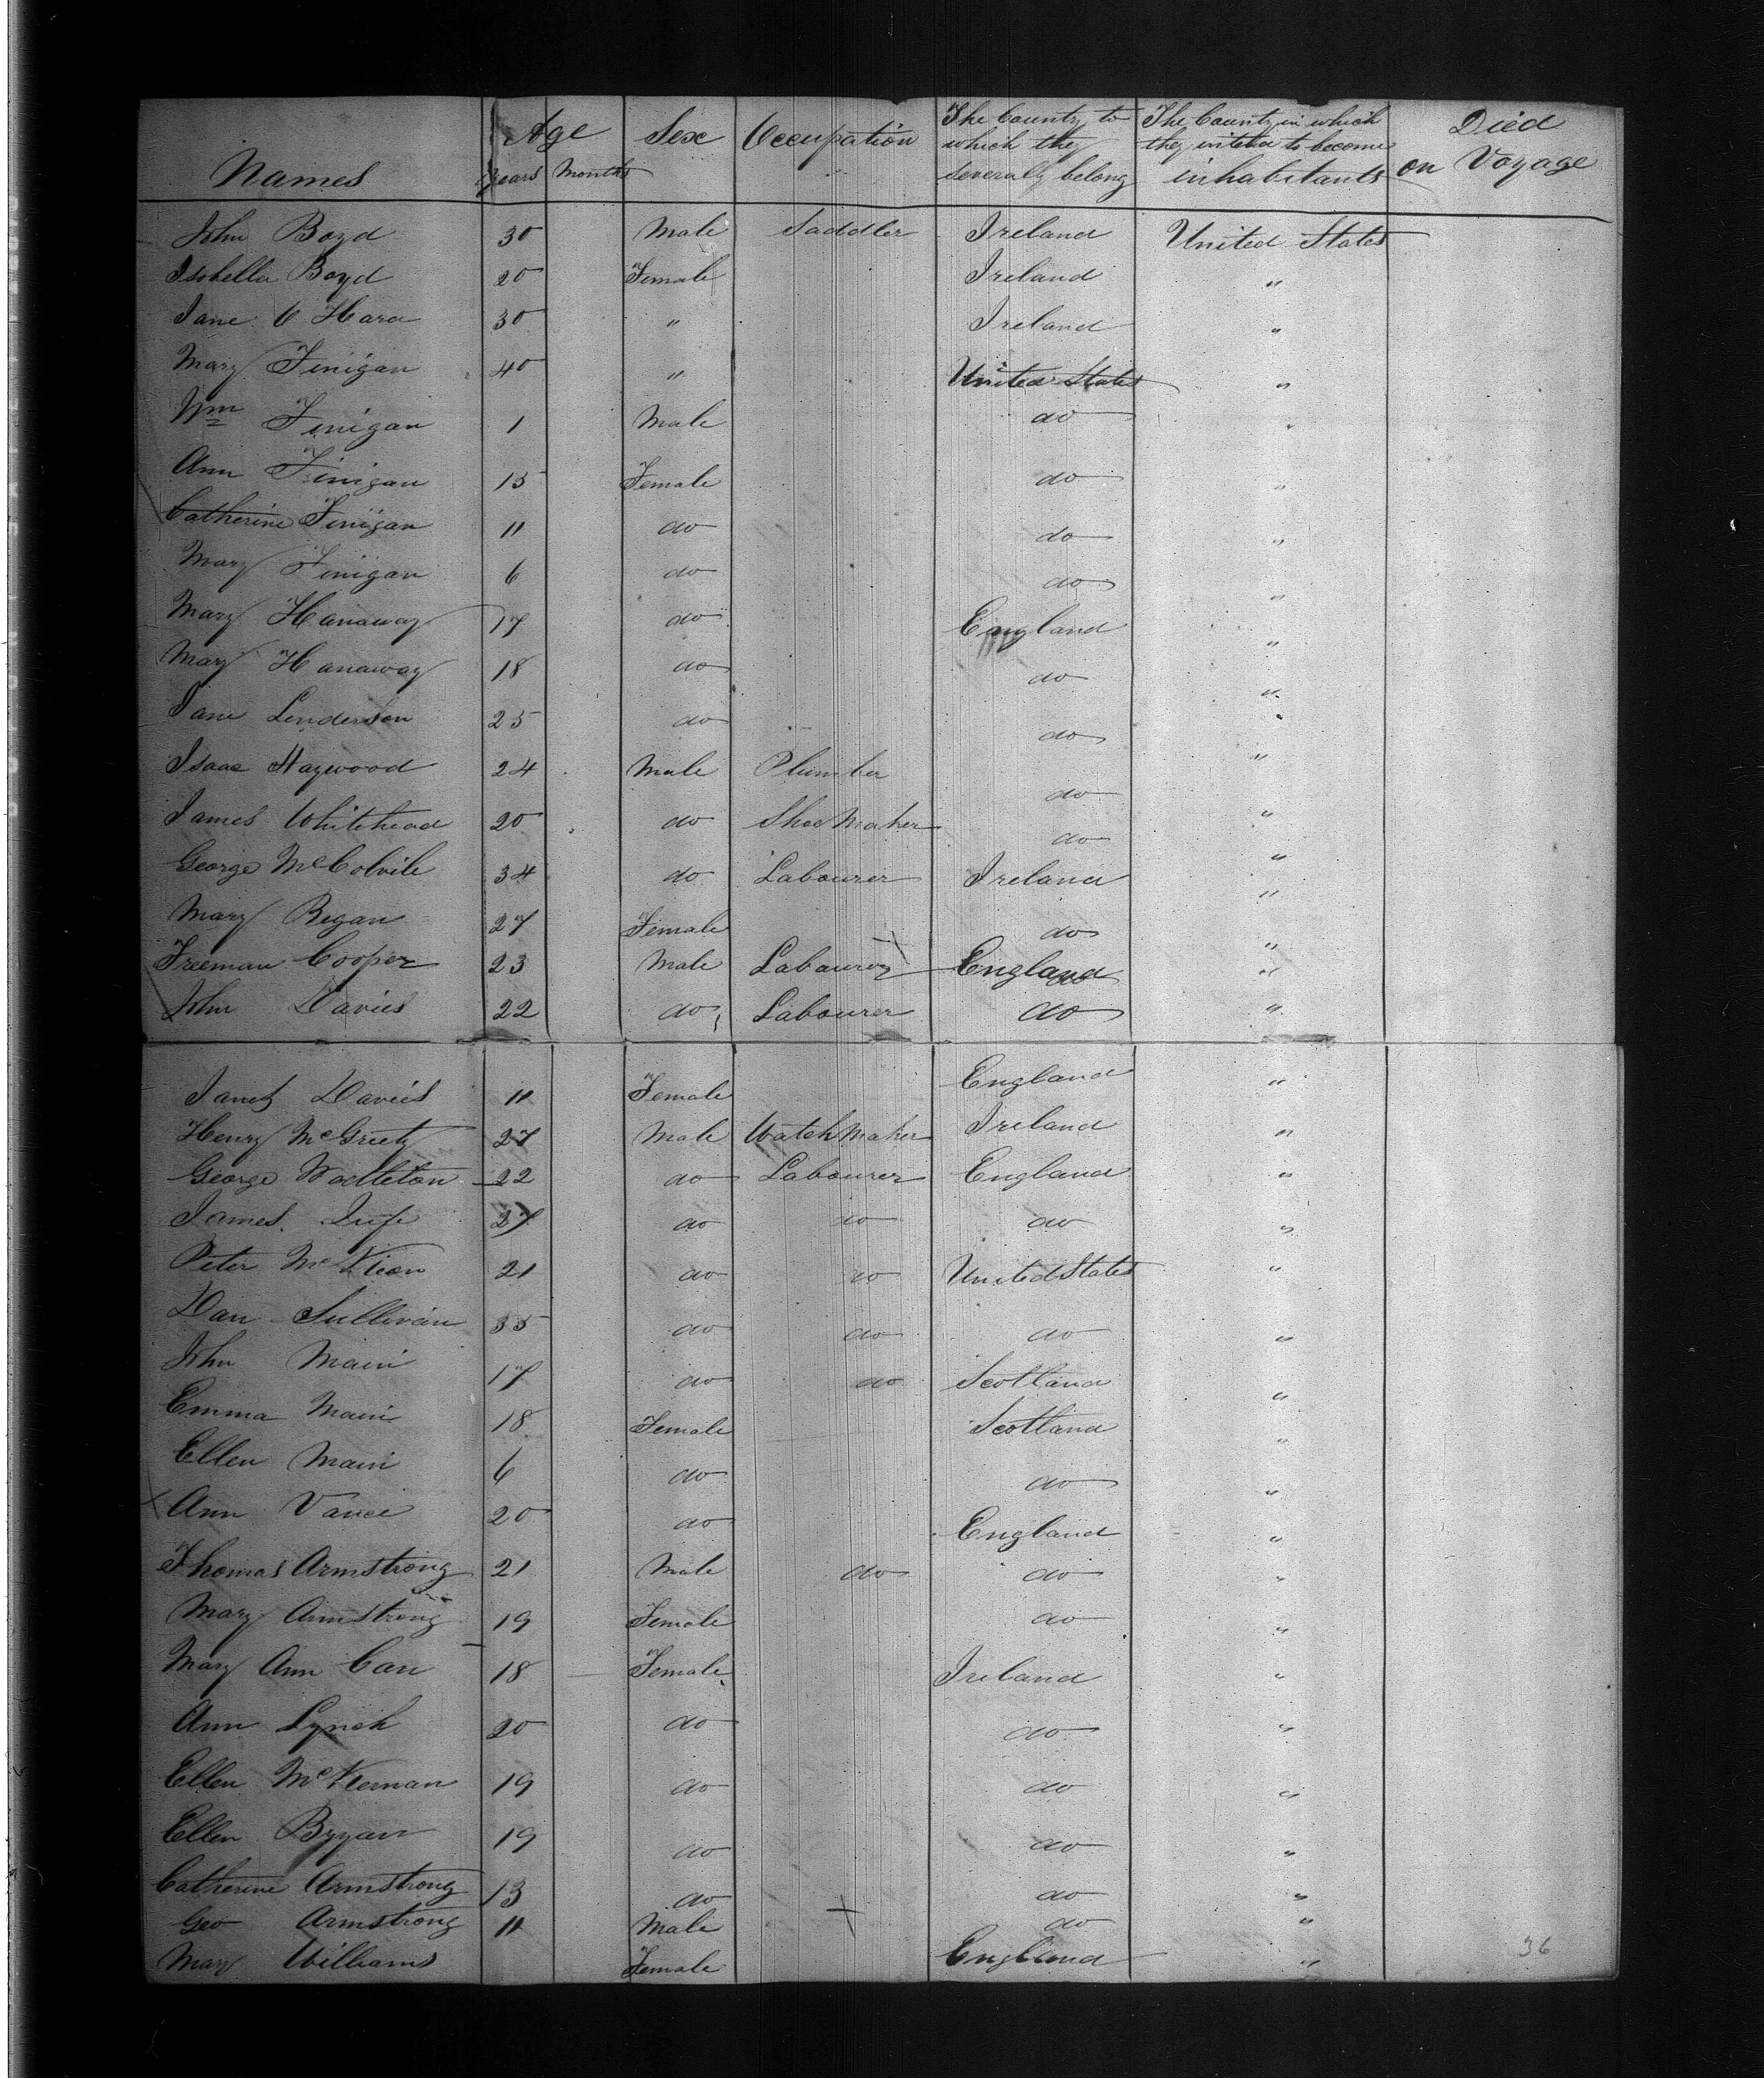 Names Age Years Months Sex Occupation The County to which they severally belong The County in which they intend to become inhabitants Died on Voyage
John Boyd 30 Male Saddler Ireland United States
Isabella Boyd 20 Female Ireland "
Jane O Hara 30 " Ireland "
Mary Finigan 40 " United States "
Wm Finigan 1 Male do "
Ann Finigan 15 Female do "
Catherine Finigan 11 do do "
Mary Finigan 6 do do "
Mary Hanaway 17 do England "
Mary Hanaway 18 do do "
Jane Lenderson 25 do do "
Isaac Haywood 24 Male Plumber do "
James Whitehead 20 do Shoe Maker do "
George McColvile 34 do Labourer Ireland "
Mary Regan 27 Female do "
Freeman Cooper 23 Male Labourer England "
John Davies 22 do Labourer do "
Janet Davies 11 Female England "
Henry McGreety 27 Male Watch Maker Ireland "
George Wadleton 22 do Labourer England "
James 27 do do do "
Peter McKeon 21 do do United States "
Dan Sullivan 35 do do do "
John Main 17 do do Scotland "
Emma Main 18 Female Scotland "
Ellen Main 6 do do "
Ann Vance 20 do England "
Thomas Armstrong 21 Male do do "
Mary Armstrong 19 Female do "
Mary Ann Carr 18 Female Ireland "
Ann Lynch 20 do do "
Ellen McKernan 19 do do "
Ellen Bryan 19 do do "
Catherine Armstrong 13 do do "
Geo Armstrong 11 Male do "
Mary Williams Female England "
36